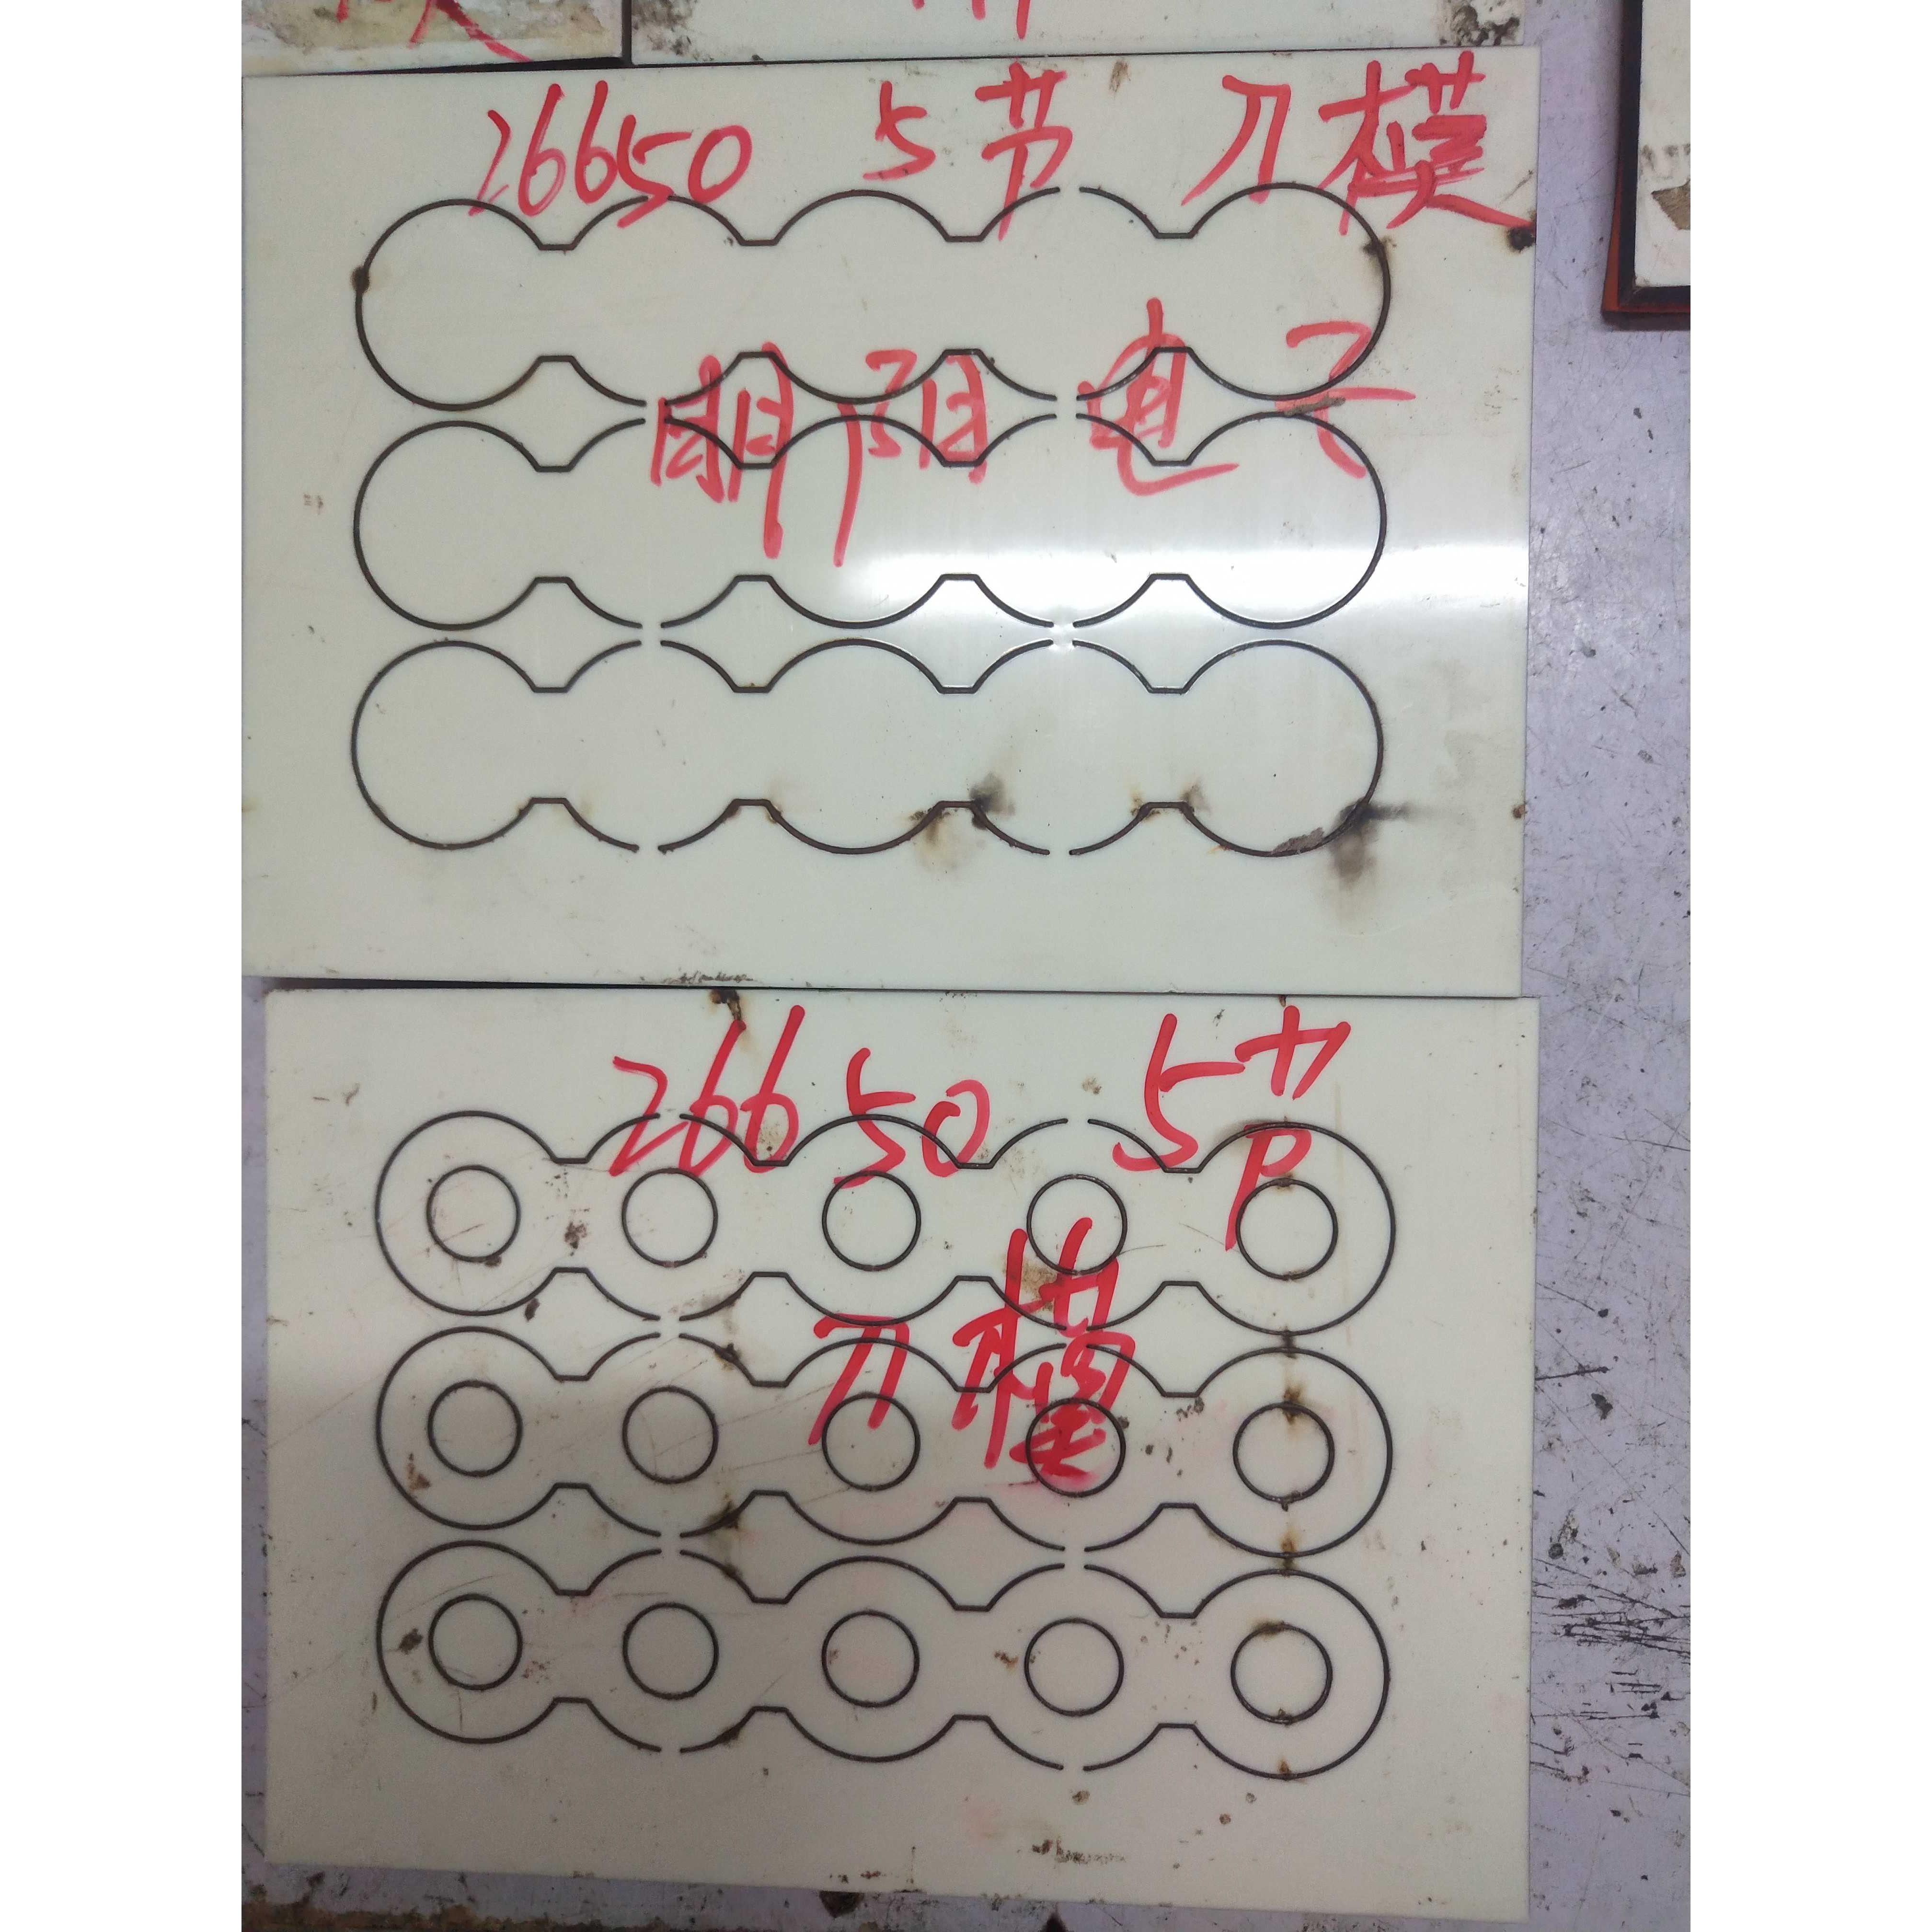 26650 5节 刀模
明阳电子
26650 5节
刀模